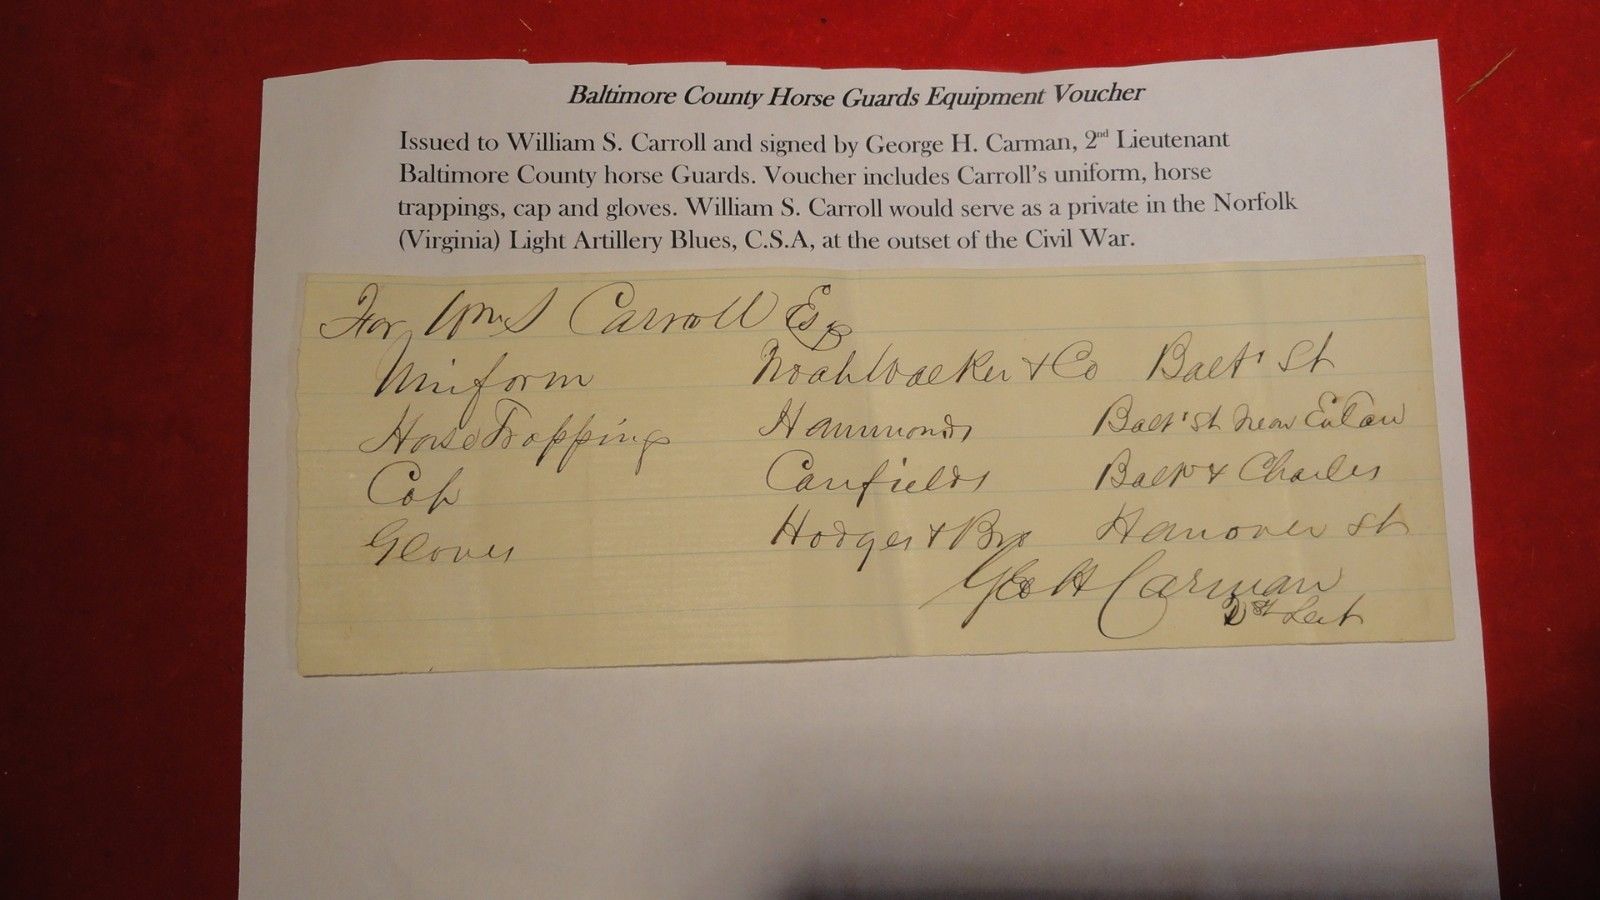 Baltimore County Horse Guards Equipment Voucher
Issued to William S. Carroll and signed by George H. Carman, 2nd Lieutenant
Baltimore County horse Guards. Voucher includes Carroll's uniform, horse
trappings, cap and gloves. William S. Carroll would serve as a private in the Norfolk
(Virginia) Light Artillery Blues, C.S.A, at the outset of the Civil War.
For Wm S Carroll Esq
Uniform Noah Walker & Co Balt' St
Horse Trappings Hammonds Balt' St Near Eutaw
Cap Canfields Balt & Charles
Gloves Hodges & Bro Hanover St
Geo H Carman
Leut